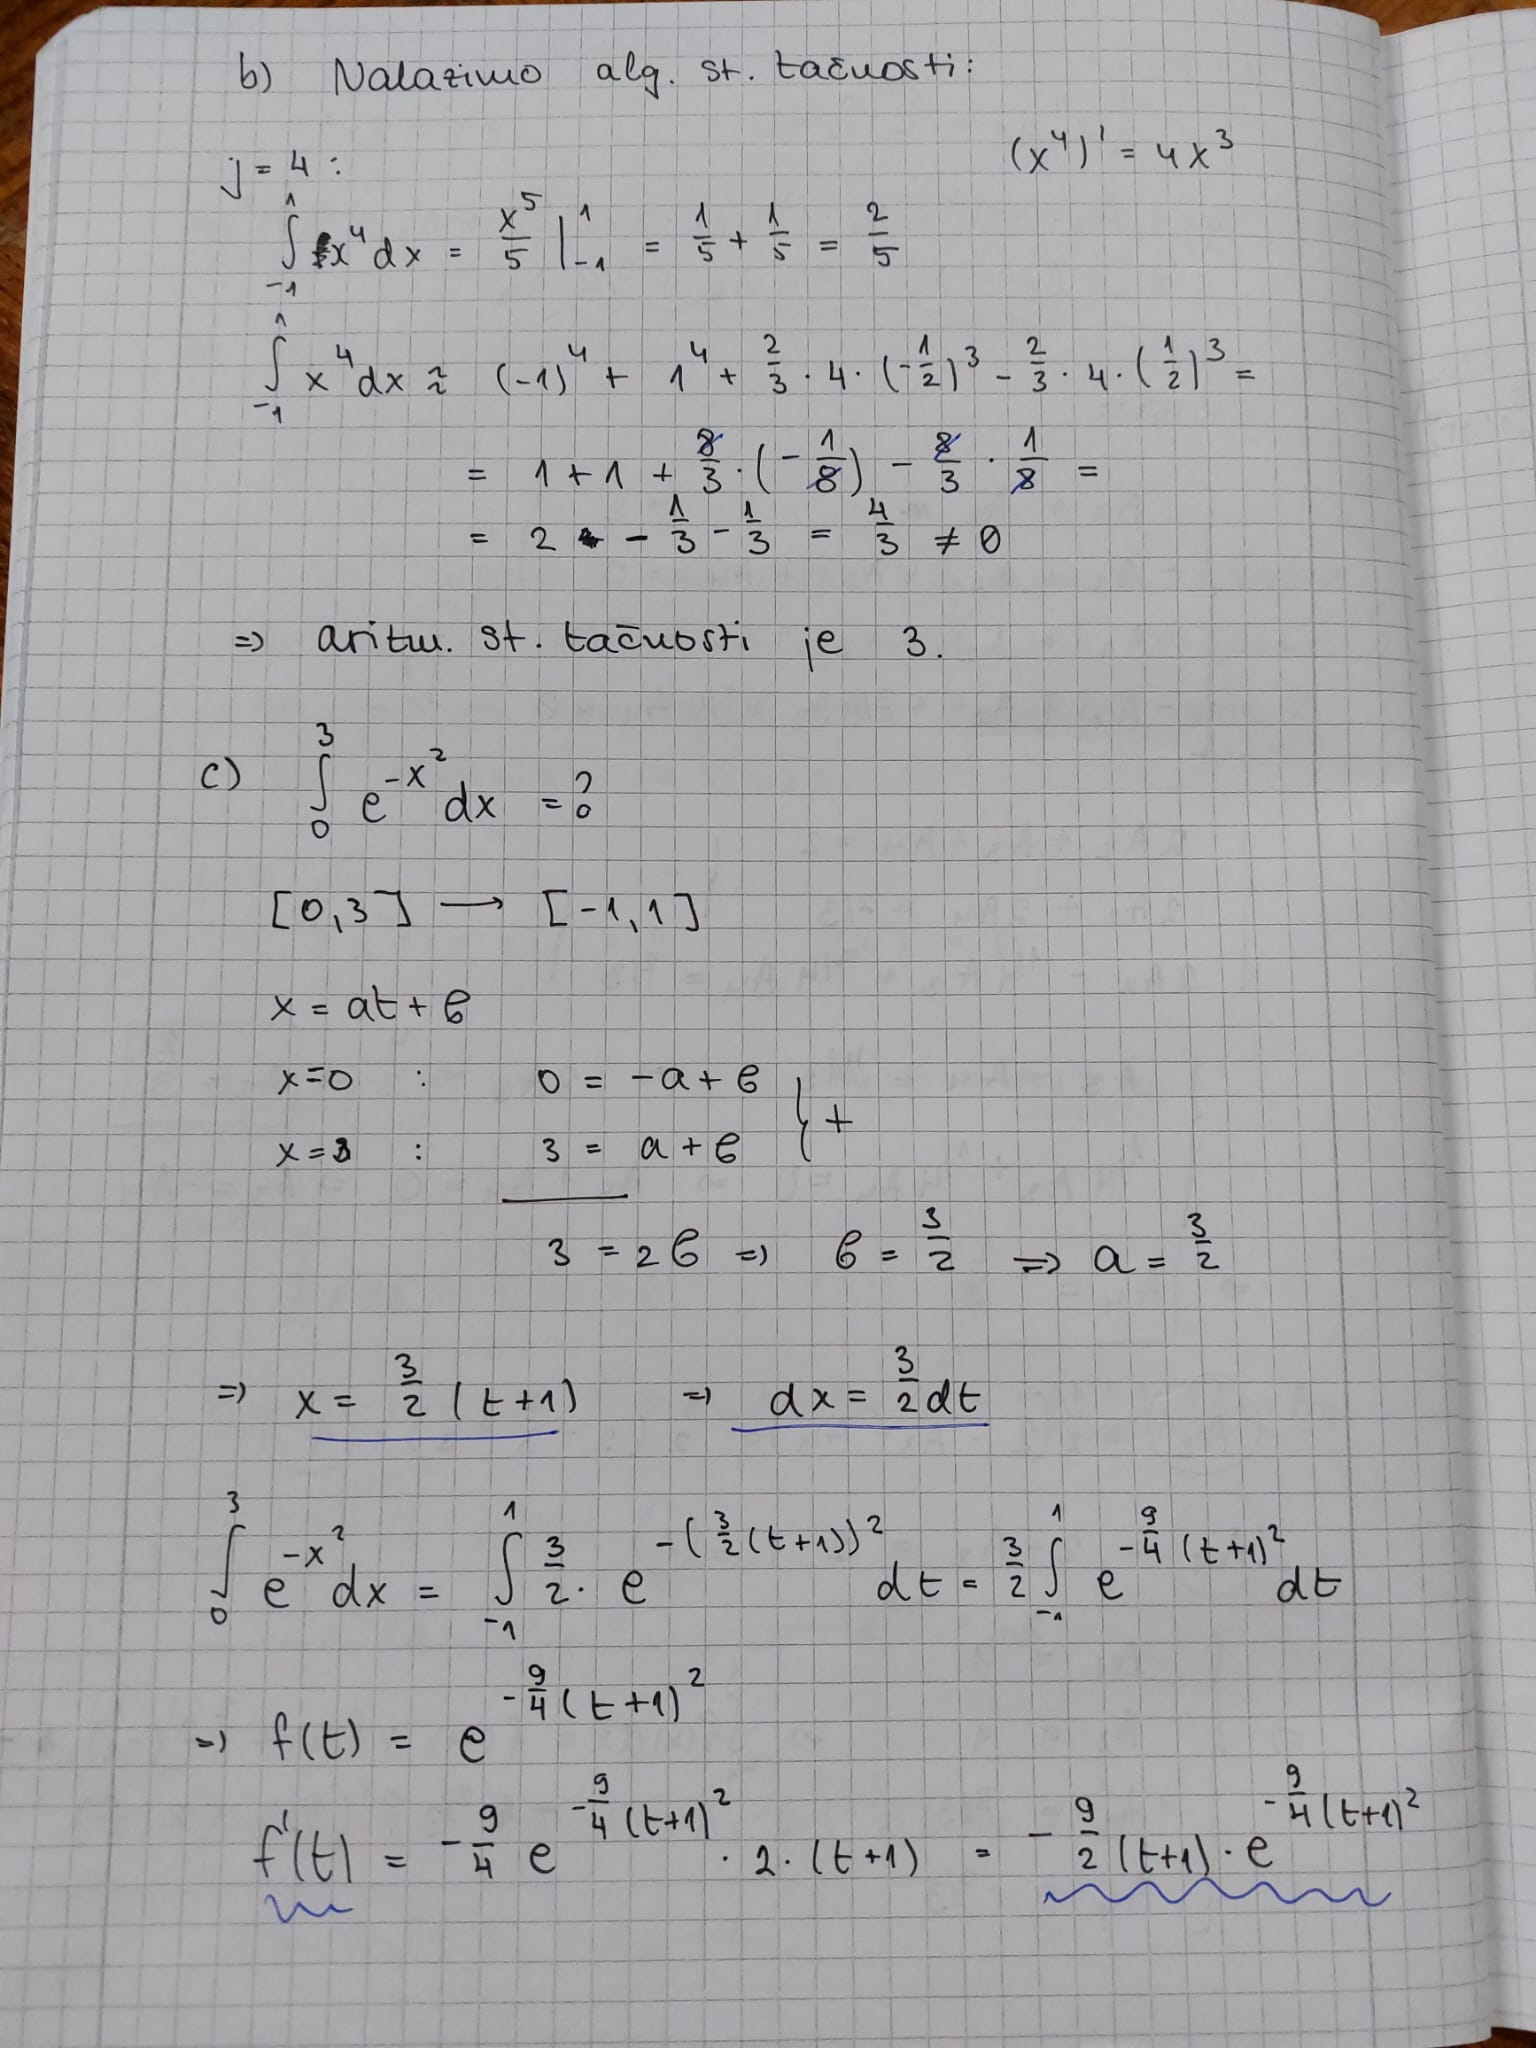 b) Nalazimo alg. st. tačnosti:
(x⁴)' = 4x³
j = 4 :
∫₋₁¹ x⁴dx = x⁵/5 |₋₁¹ = 1/5 + 1/5 = 2/5
∫₋₁¹ x⁴dx ≈ (-1)⁴ + 1⁴ + 2/3 · 4 · (-1/2)³ - 2/3 · 4 · (1/2)³ =
= 1 + 1 + 8/3 · (-1/8) - 8/3 · 1/8 =
= 2 - 1/3 - 1/3 = 4/3 ≠ 0
=> aritm. st. tačnosti je 3.
c) ∫₀³ e^(-x²) dx = ?
[0,3] → [-1,1]
x = at + b
x=0 : 0 = -a + b
x=3 : 3 = a + b } +
3 = 2b => b = 3/2 => a = 3/2
=> x = 3/2 (t+1) => dx = 3/2 dt
∫₀³ e^(-x²) dx = ∫₋₁¹ 3/2 · e^(-(3/2(t+1))²) dt = 3/2 ∫₋₁¹ e^(-9/4(t+1)²) dt
=> f(t) = e^(-9/4(t+1)²)
f'(t) = -9/4 e^(-9/4(t+1)²) · 2 · (t+1) = -9/2 (t+1) · e^(-9/4(t+1)²)